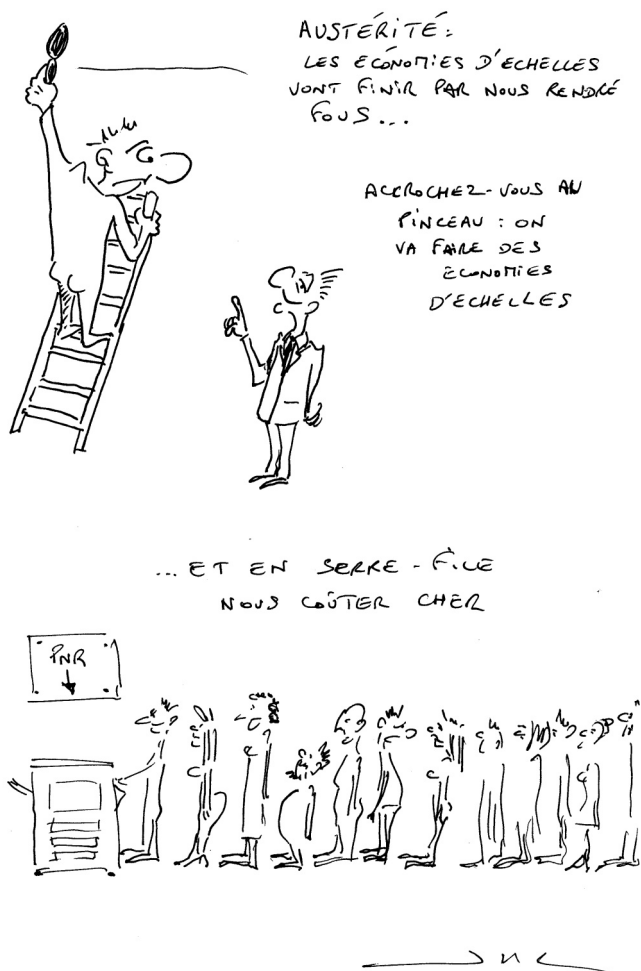 AUSTÉRITÉ:
LES ÉCONOMIES D'ECHELLES
VONT FINIR PAR NOUS RENDRE
FOUS...
ACCROCHEZ-VOUS AU
PINCEAU : ON
VA FAIRE DES
ECONOMIES
D'ECHELLES
... ET EN SERRE-FILE
NOUS COÛTER CHER
PNR